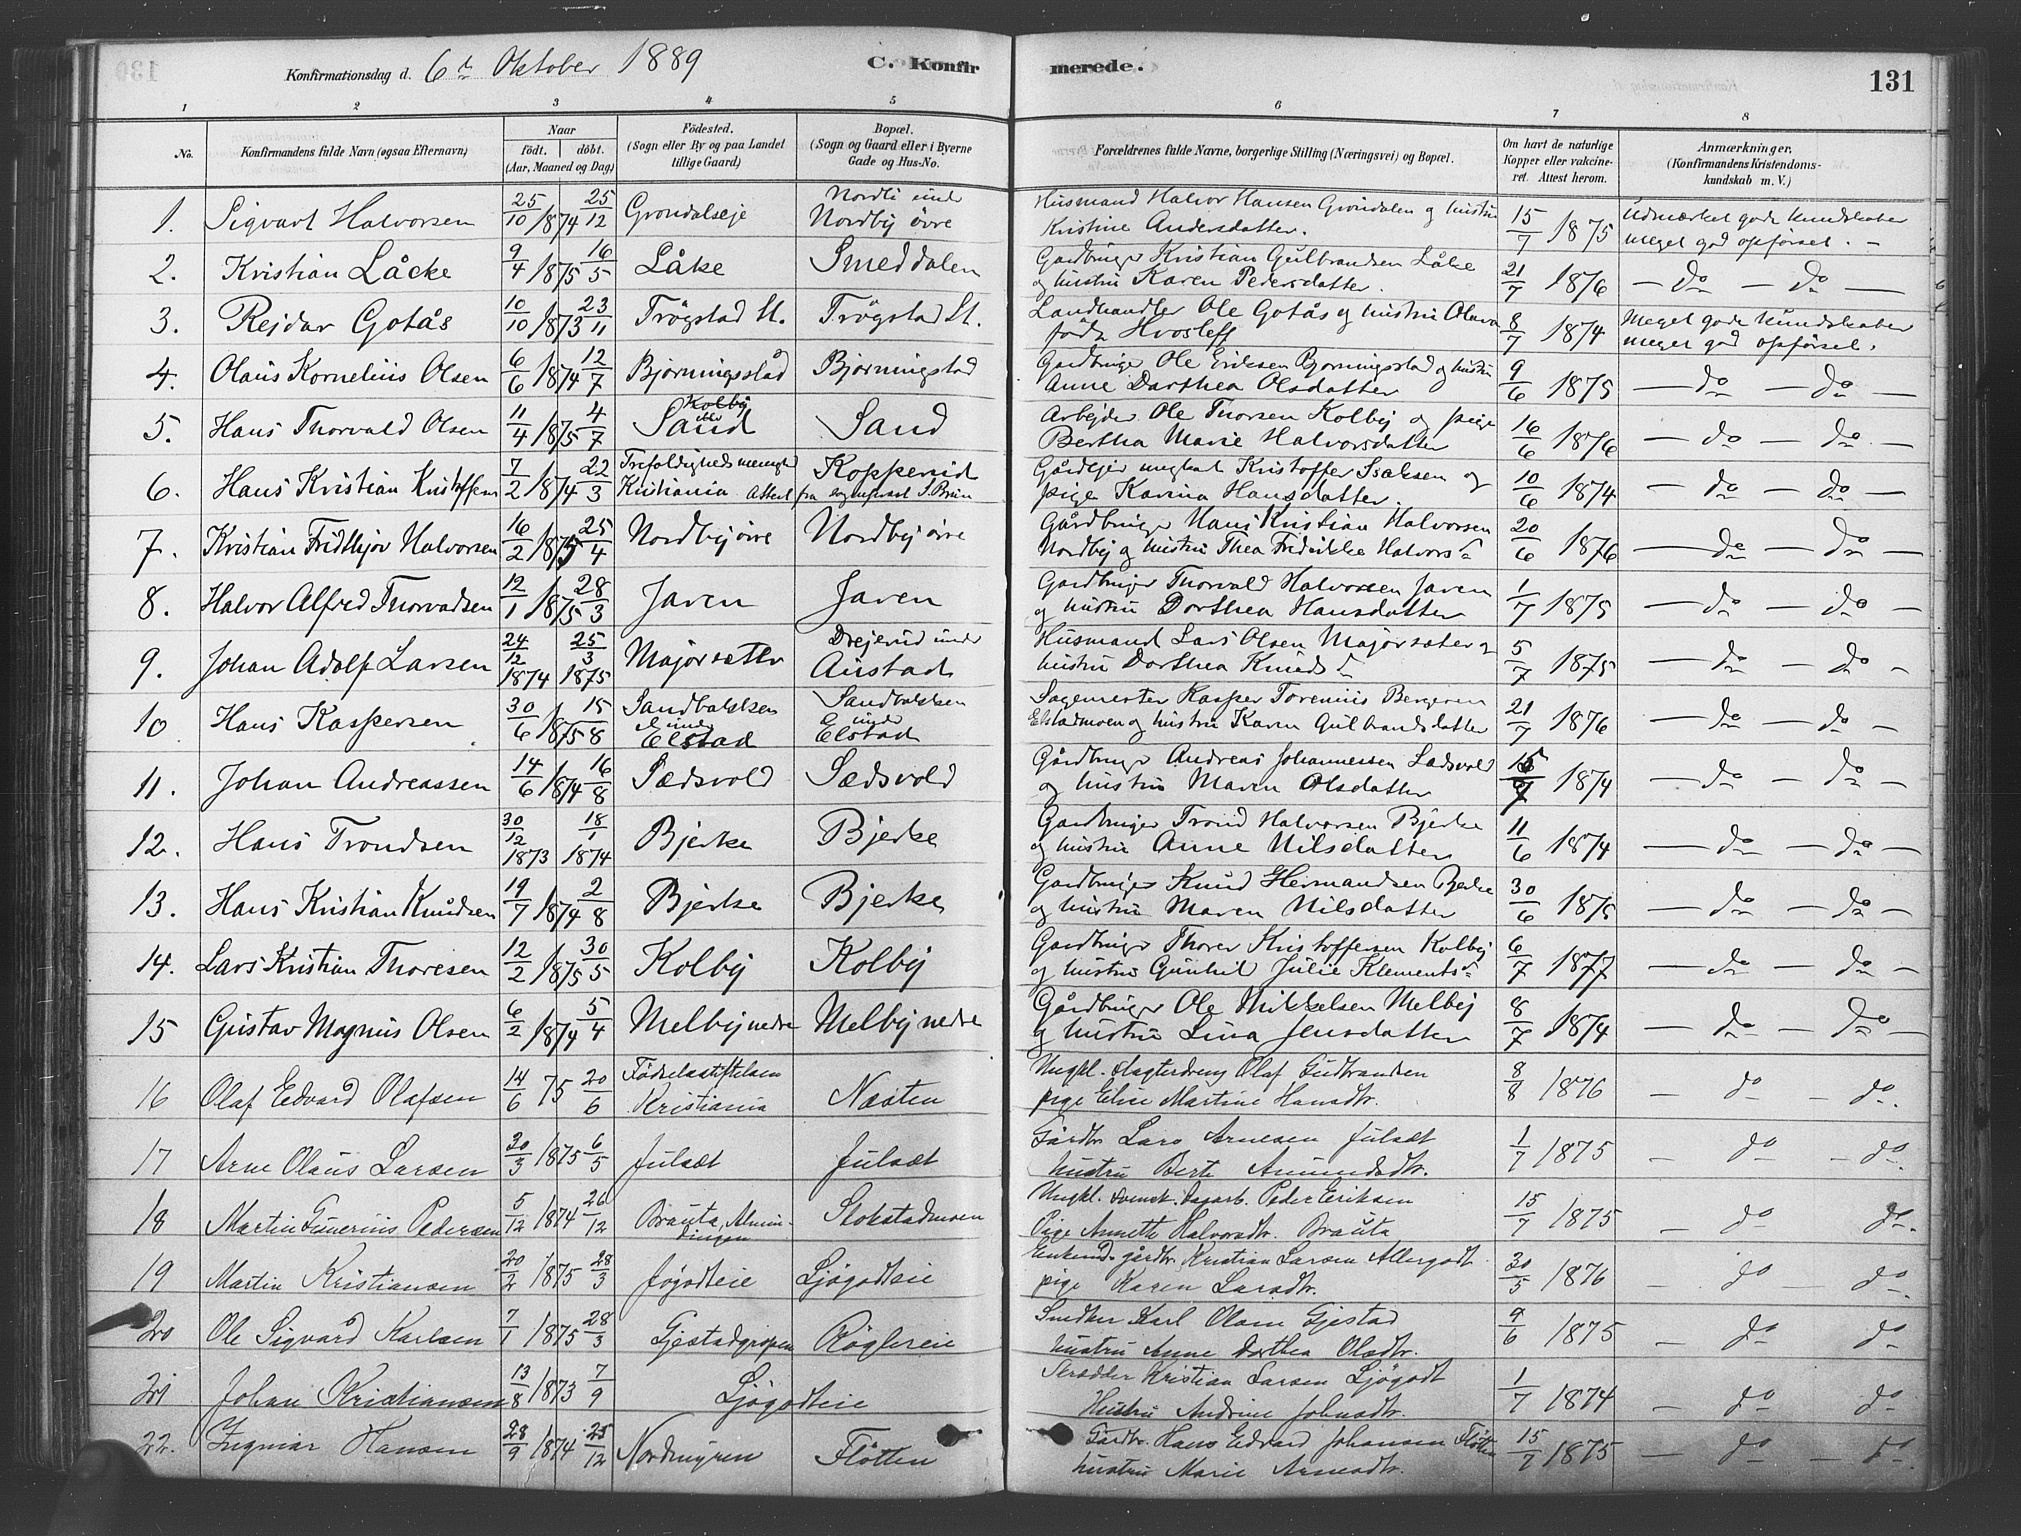 Konfirmationsdag d. 6te Oktober 1889
C. Konfirmerede.
131
1 2 3 4 5 6 7 8
No.
Konfirmandens fulde Navn (ogsaa Efternavn)
Naar
født. døbt.
(Aar, Maaned og Dag)
Fødested.
(Sogn eller By og paa Landet
tillige Gaard)
Bopæl.
(Sogn og Gaard eller i Byerne
Gade og Hus-No.
Forældrenes fulde Navne, borgerlige Stilling (Næringsvei) og Bopæl.
Om havt de naturlige
Kopper eller vakcine-
ret. Attest herom.
Anmærkninger.
(Konfirmandens Kristendoms-
kundskab m. V.)
1. Sigvart Halvorsen 25/10 1874 25/12 Grondalseje Nordli under Nordby övre
Husmand Halvor Hansen Gröndalen og hustru
Kristine Andersdatter. 15/7 1875 Udmærket gode kundskaber
meget god opförsel. –
2. Kristian Låcke 9/4 1875 16/5 Låke Smeddalen
Gardbruger Kristian Gulbrandsen Låke
og hustru Karen Pedersdatter. 21/7 1876 – do – do –
3. Rejdar Gotås 10/10 1873 23/11 Trögstad St. Trögstad St.
Landhandler Ole Gotås og hustru Olava
födt Hvosleff 8/7 1874 Meget gode kundskaber
meget god opförsel.
4. Olaus Kornelius Olsen 6/6 1874 12/7 Bjorningsstad Bjorningstad
Gardbruger Ole Eriksen Bjorningsstad og hustru
Anne Dorthea Olsdatter 9/6 1875 – do – do –
5. Hans Thorvald Olsen 11/4 1875 4/7 Kolby eller Sand Sand
Arbejder Ole Thorsen Kolby og pige
Bertha Marie Halvorsdatter 16/6 1876 – do – do –
6. Hans Kristian Kristoffersen 7/2 1874 22/3 Trefoldighedsmenighed Kopperud
Kristiania Attest fra sognepræst J. Bruun
Gårdejer ungkarl Kristoffer Isaksen og
pige Karina Hansdatter. 10/6 1874 – do – do –
7. Kristian Fridthjov Halvorsen 16/2 1875 25/4 Nordby övre Nordby övre
Gårdbruger Hans Kristian Halvorsen
Nordby og hustru Thea Fredrikke Halvorsd. 20/6 1876 – do – do –
8. Halvor Alfred Thorvadsen 12/1 1875 28/3 Javen Javen
Gardbruger Thorvald Halvorsen Javen
og hustru Dorthea Hansdatter 1/7 1875 – do – do –
9. Johan Adolf Larsen 24/12 1874 25/3 1875 Majorsætr Drejerud under Austad
Husmand Lars Olsen Majorsæter og
hustru Dorthea Knudsd. 5/7 1875 – do – do –
10 Hans Kaspersen 30/6 1875 15/8 Sandbakken under Elstad Sandbakken under Elstad
Sagemester Kasper Toreniús Bergersen
Elstadmoen og hustru Karen Gulbrandsdatter 21/7 1876 – do – do –
11. Johan Andreassen 14/6 1874 16/8 Sædsvold Sædsvold
Gårdbruger Andreas Johannessen Sædsvold
og hustru Maren Olsdatter 1874 – do – do –
12. Hans Trondsen 30/12 1873 18/1 1874 Bjerke Bjerke
Gardbruger Trond Halvorsen Bjerke
og hustru Anne Nilsdatter 11/6 1874 – do – do –
13. Hans Kristian Knudsen 19/7 1874 2/8 Bjerke Bjerke
Gardbruger Knud Hermandsen Bjerke
og hustru Maren Nilsdatter 30/6 1875 – do – do –
14. Lars Kristian Thoresen 12/2 1875 30/5 Kolby Kolby
Gardbruger Thorer Kristoffersen Kolby
og hustru Gunhil Julie Klementsd. 6/7 1877 – do – do –
15 Gustav Magnus Olsen 6/2 1874 5/4 Melby nedre Melby nedre
Gårdbruger Ole Mikkelsen Melby
og hustru Lina Jensdatter 8/7 1874 – do – do –
16 Olaf Edvard Olafsen 14/6 75 20/6 Födselsstiftelsen Kristiania Næsten
Ungkl. Slagterdreng Olaf Gudbrandsen
pige Elise Martine Hansdtr. 8/8 1876 – do – do.
17 Arne Olaus Larsen 30/3 1875 6/5 Julsæt Julsæt
Gårdbr Lars Arnesen Julsæt
hustru Berte Amundsdtr. 1/7 1875 – do – do.
18 Martin Gunerius Pedersen 5/12 1874 26/12 Brauta, Almindingen Stokstadmoen
Ungkl. svensk. Dagarb. Peder Eriksen
Pige Annette Halvorsdtr. Brauta 15/7 1875 – do do.
19 Martin Kristiansen 20/2 1875 28/3 Jögodteie Ljögodteie
Enkemd. gårdbr. Kristian Larsen Allergodt
pige Karen Larsdtr. 30/5 1876 – do do.
20 Ole Sigvard Karlsen 7/1 1875 28/3 Gjestadgropen Röglereie
Snedker Karl Olsen Gjestad
hustru Anne Dorthea Olsdtr. 9/6 1875 – do do
21 Johan Kristiansen 13/8 1873 7/9 Ljögodteie
Skrædder Kristian Larsen Ljögodt
Hustru Andrine Johnsdtr. 1/7 1874 – do do
22. Ingmar Hansen 28/9 1874 25/12 Nordmyren Flötten
Gårdbr. Hans Edvard Johansen Flötten
hustru Marie Arnesdtr. 15/7 1875 – do do